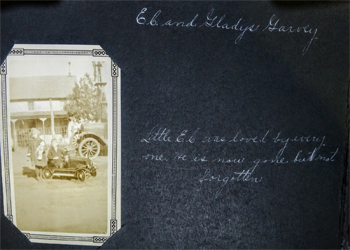 E.C. and Gladys Garvey
Little E.C. was loved by every
one. He is now gone but not
forgotten